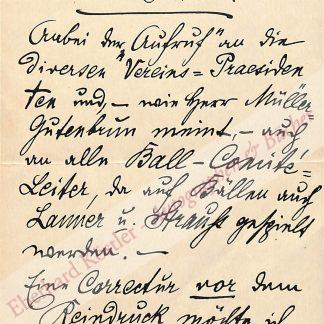 Anbei der "Aufruf" an die
diversen "Vereins=Praesiden
ten und, – wie Herr Müller
Gutenbrunn meint, – auch
an alle Ball-Comité-
Leiter, da auf Bällen auch
Lanner u. Strauß gespielt
werden. –
Eine Correctur vor dem
Reindruck möchte ich